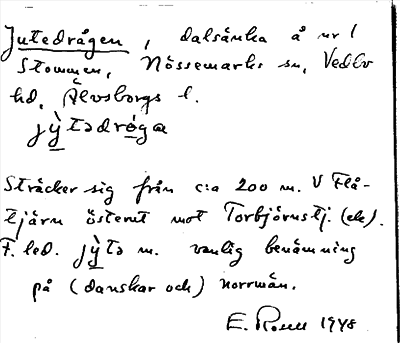 Jutedrågen, dalsänka å nr 1
Stommen, Nössemarks sn, Vedbo
hd, Älvsborgs l.
jỳtədrɷgæ
Sträcker sig från c:a 200 m. V Flå-
tjärn österut mot Torbjörnstj. (ek).
F. led. jỳtə m. vanlig benämning
på (danskar och) norrmän.
E. 1948